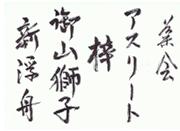 葉会
アスリート
梓
御山獅子
新浮舟